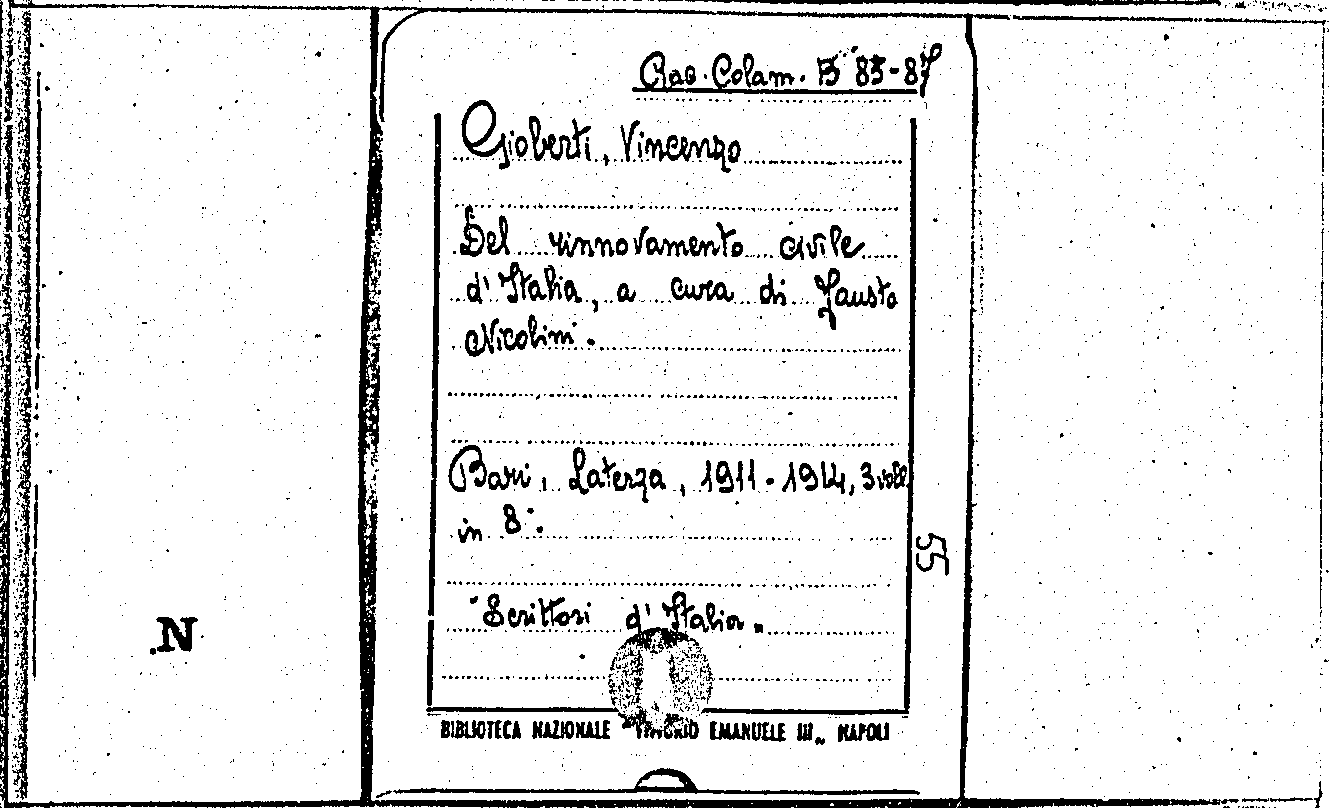 Rac. Colam. B 85-87
Gioberti, Vincenzo
Del rinnovamento civile
d'Italia, a cura di Fausto
Nicolini.
Bari, Laterza, 1911-1914, 3 voll.
in 8°.
55
"Scrittori d'Italia„
.N
BIBLIOTECA NAZIONALE "VITTORIO EMANUELE III„ NAPOLI